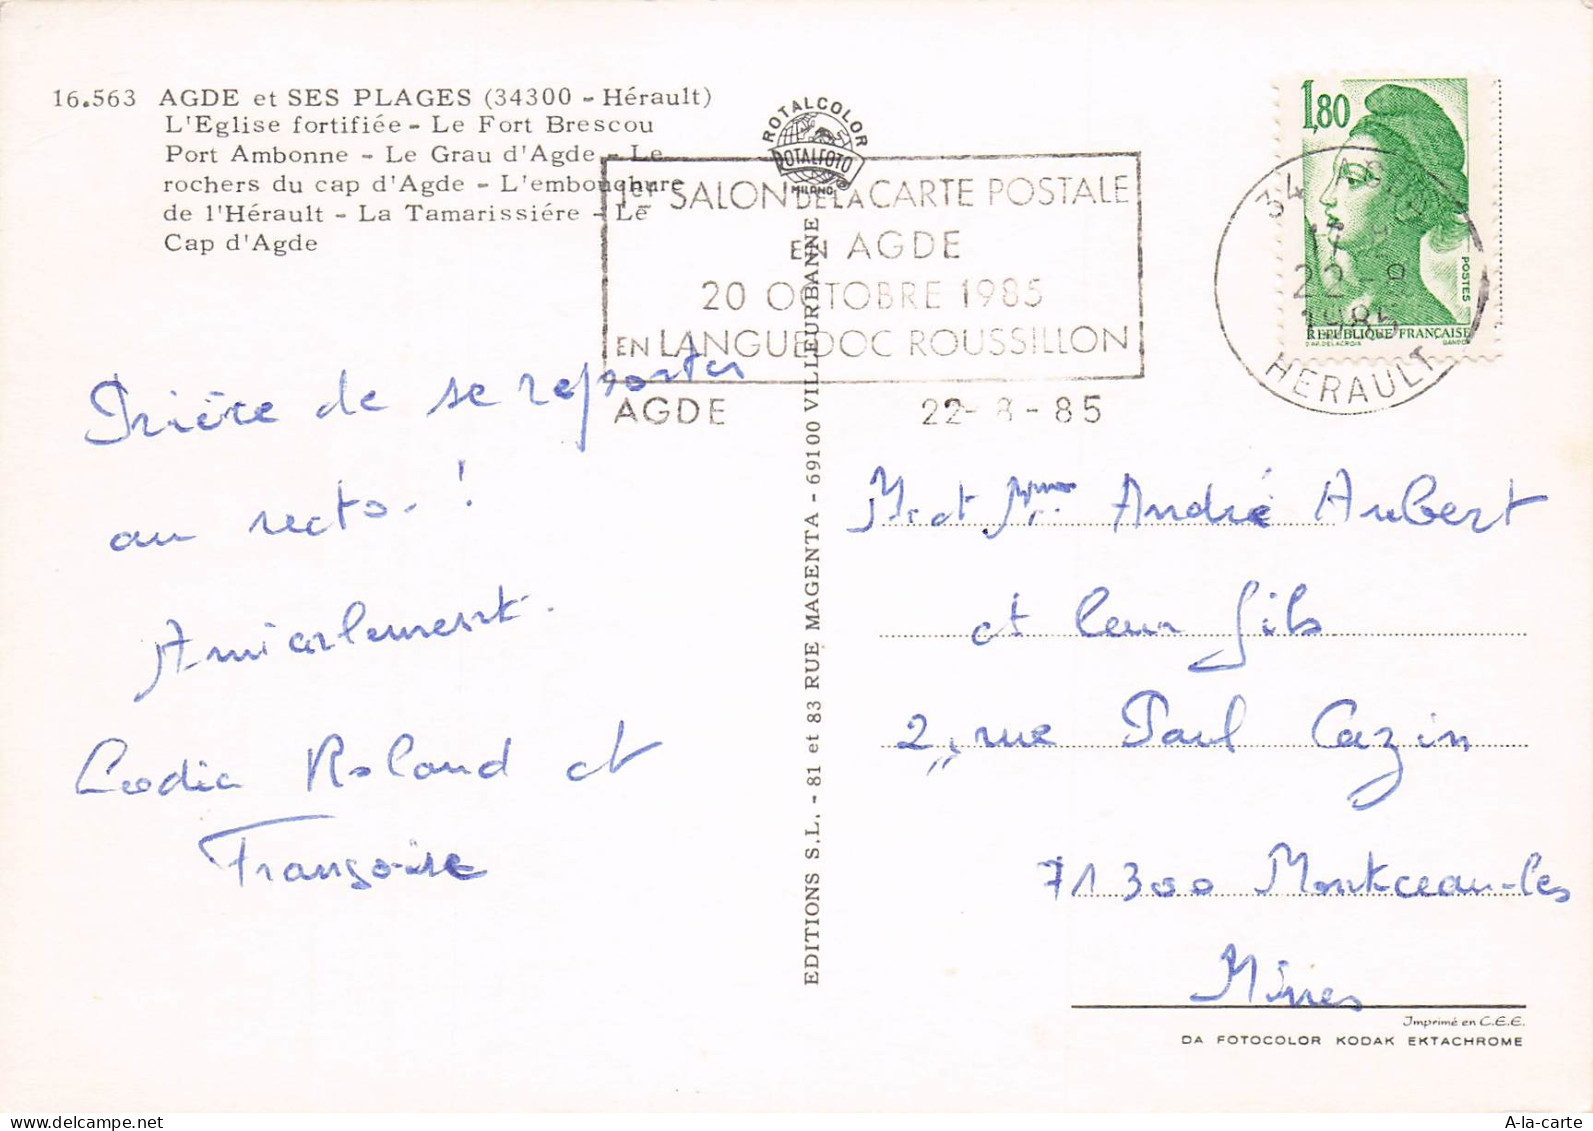 16.563 AGDE et SES PLAGES (34300 - Hérault)
L'Eglise fortifiée - Le Fort Brescou
Port Ambonne - Le Grau d'Agde - Le
rochers du cap d'Agde - L'embouchure
de l'Hérault - La Tamarissiére - Le
Cap d'Agde
ROTALCOLOR
ROTALFOTO
MILANO
1er SALON DE LA CARTE POSTALE
EN AGDE
20 OCTOBRE 1985
EN LANGUEDOC ROUSSILLON
AGDE 22-8-85
1,80
POSTES
REPUBLIQUE FRANÇAISE
D'AP. DELACROIX GANDON
34 AGDE
22-8
1985
HERAULT
Prière de se reporter
au recto.!
Amicalement.
Leodie Roland et
Françoise
EDITIONS S.L. - 81 et 83 RUE MAGENTA - 69100 VILLEURBANNE
M. et Mme André Aubert
et leur fils
2, rue Paul Cazin
71300 Montceau-les
Mines
Imprimé en C.E.E.
DA FOTOCOLOR KODAK EKTACHROME
A-la-carte